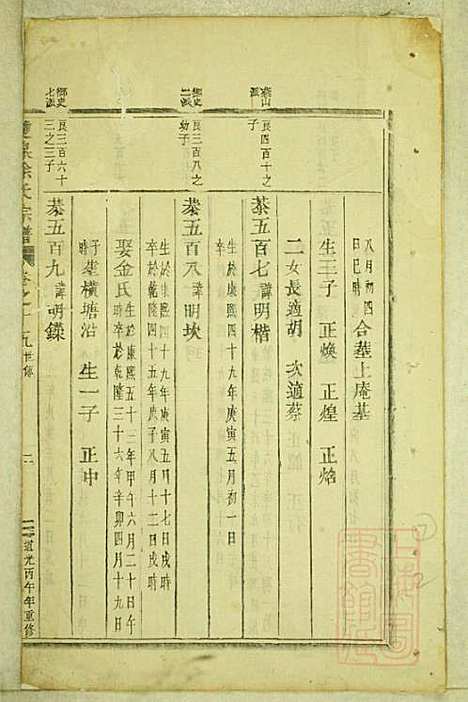 八月初四
日巳時
合墓上庵基
生三子 正煥 正煌 正焰
二女長適胡 次適蔡
葉山
派
良四百十之
子
恭五百七 諱明楷
生於康熙四十九年庚寅五月初一日
卒
鄉史
二派
良三百八之
幼子
恭五百八 諱明坎
生於康熙四十九年庚寅五月十七日戌時
卒於乾隆四十五年庚子八月十二日戌時
娶金氏
生於康熙五十三年甲午六月二十日午
時卒於乾隆三十六年辛卯四月十九日
子時
墓橫塘沿 生一子 正中
鄉史
七派
良三百六十
三之三子
恭五百九 諱明鑅
氏宗譜
卷之
九世傳
二
道光丙午年重修